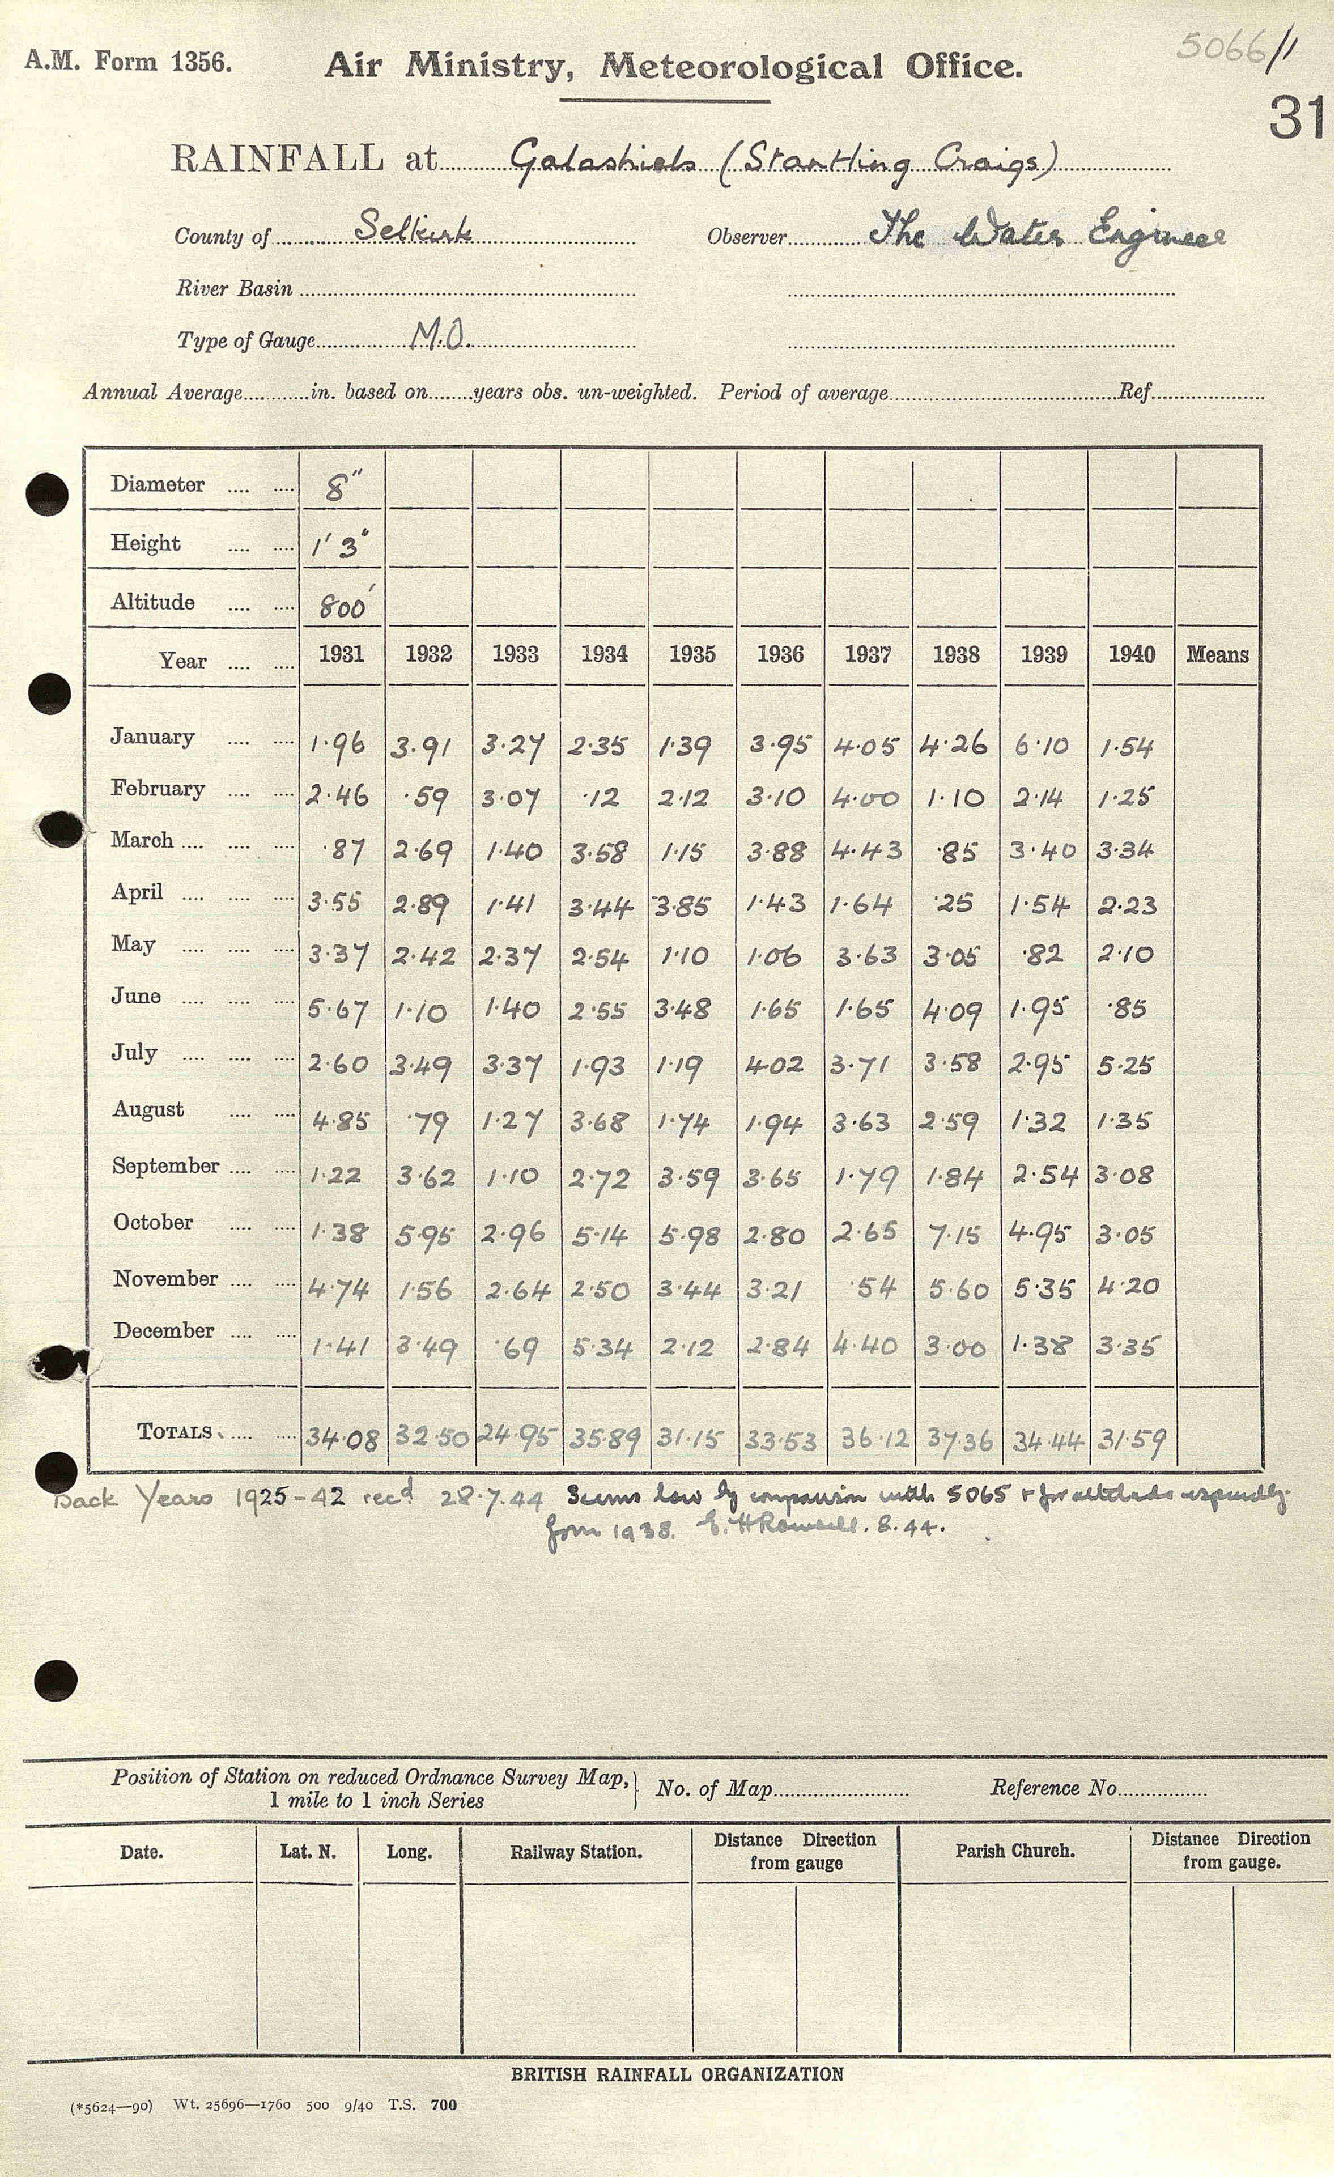 5066/1
A.M. Form 1356.
Air Ministry, Meteorological Office.
31
RAINFALL at Galashiels (Stantling Craigs)
County of Selkirk Observer The Water Engineer
River Basin
Type of Gauge M.O.
Annual Average in. based on years obs. un-weighted. Period of average Ref
Diameter 8"
Height 1' 3"
Altitude 800'
Year 1931 1932 1933 1934 1935 1936 1937 1938 1939 1940 Means
January 1.96 3.91 3.27 2.35 1.39 3.95 4.05 4.26 6.10 1.54
February 2.46 .59 3.07 .12 2.12 3.10 4.00 1.10 2.14 1.25
March .87 2.69 1.40 3.58 1.15 3.88 4.43 .85 3.40 3.34
April 3.55 2.89 1.41 3.44 3.85 1.43 1.64 .25 1.54 2.23
May 3.37 2.42 2.37 2.54 1.10 1.06 3.63 3.05 .82 2.10
June 5.67 1.10 1.40 2.55 3.48 1.65 1.65 4.09 1.95 .85
July 2.60 3.49 3.37 1.93 1.19 4.02 3.71 3.58 2.95 5.25
August 4.85 .79 1.27 3.68 1.74 1.94 3.63 2.59 1.32 1.35
September 1.22 3.62 1.10 2.72 3.59 3.65 1.79 1.84 2.54 3.08
October 1.38 5.95 2.96 5.14 5.98 2.80 2.65 7.15 4.95 3.05
November 4.74 1.56 2.64 2.50 3.44 3.21 .54 5.60 5.35 4.20
December 1.41 3.49 .69 5.34 2.12 2.84 4.40 3.00 1.38 3.35
TOTALS 34.08 32.50 24.95 35.89 31.15 33.53 36.12 37.36 34.44 31.59
Back Years 1925-42 recd 28.7.44 Seems low by comparison with 5065 + for altitude especially
from 1938. 8.44.
Position of Station on reduced Ordnance Survey Map, No. of Map Reference No
1 mile to 1 inch Series
Date. Lat. N. Long. Railway Station. Distance Direction from gauge Parish Church. Distance Direction from gauge.
BRITISH RAINFALL ORGANIZATION
(*5624—90) Wt. 25696—1760 500 9/40 T.S. 700